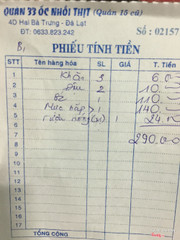 QUÁN 33 ỐC KHÓI THỊT (Quán 15 cũ)
4D Hai Bà Trưng - Đà Lạt
ĐT: 0633.823.242
Số: 02157
B1
PHIẾU TÍNH TIỀN
STT Tên hàng hóa SL GIÁ T. Tiền
1 Khăn 3 6.0
2 2 10
3 1 110
4 Mực hấp 1 140
5 1 24
6
7 290.00
8
TỔNG CỘNG